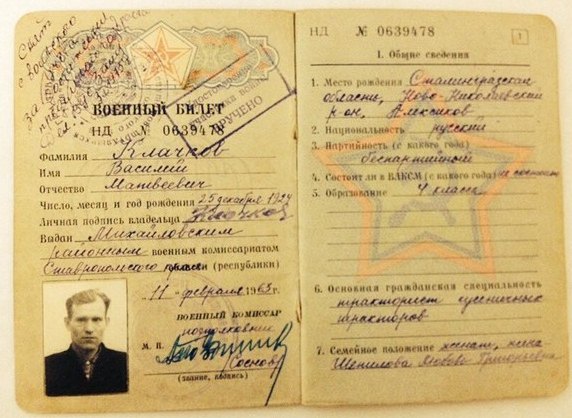 Снят
с воинского
за
ВОЕННЫЙ БИЛЕТ
НД № 0639478
ВРУЧЕНО
Фамилия Клачков
Имя Василий
Отчество Матвеевич
Число, месяц и год рождения 25 декабря 1924
Личная подпись владельца
Выдан Михайловским
районным военным комиссариатом
Ставропольского края (республики)
"11" февраля 1963 г.
ВОЕННЫЙ КОМИССАР
подполковник
М. П.
(Соснов)
(звание, подпись)
НД № 0639478
1
I. Общие сведения
1. Место рождения Сталинградская
область, Ново-Николаевский
р-он, Алексиков
2. Национальность русский
3. Партийность (с какого года)
беспартийный
4. Состоит ли в ВЛКСМ (с какого года) не состоит
5. Образование 4 класса
6. Основная гражданская специальность
тракторист гусеничных
тракторов
7. Семейное положение женат, жена
Шепилова Любовь Григорьевна